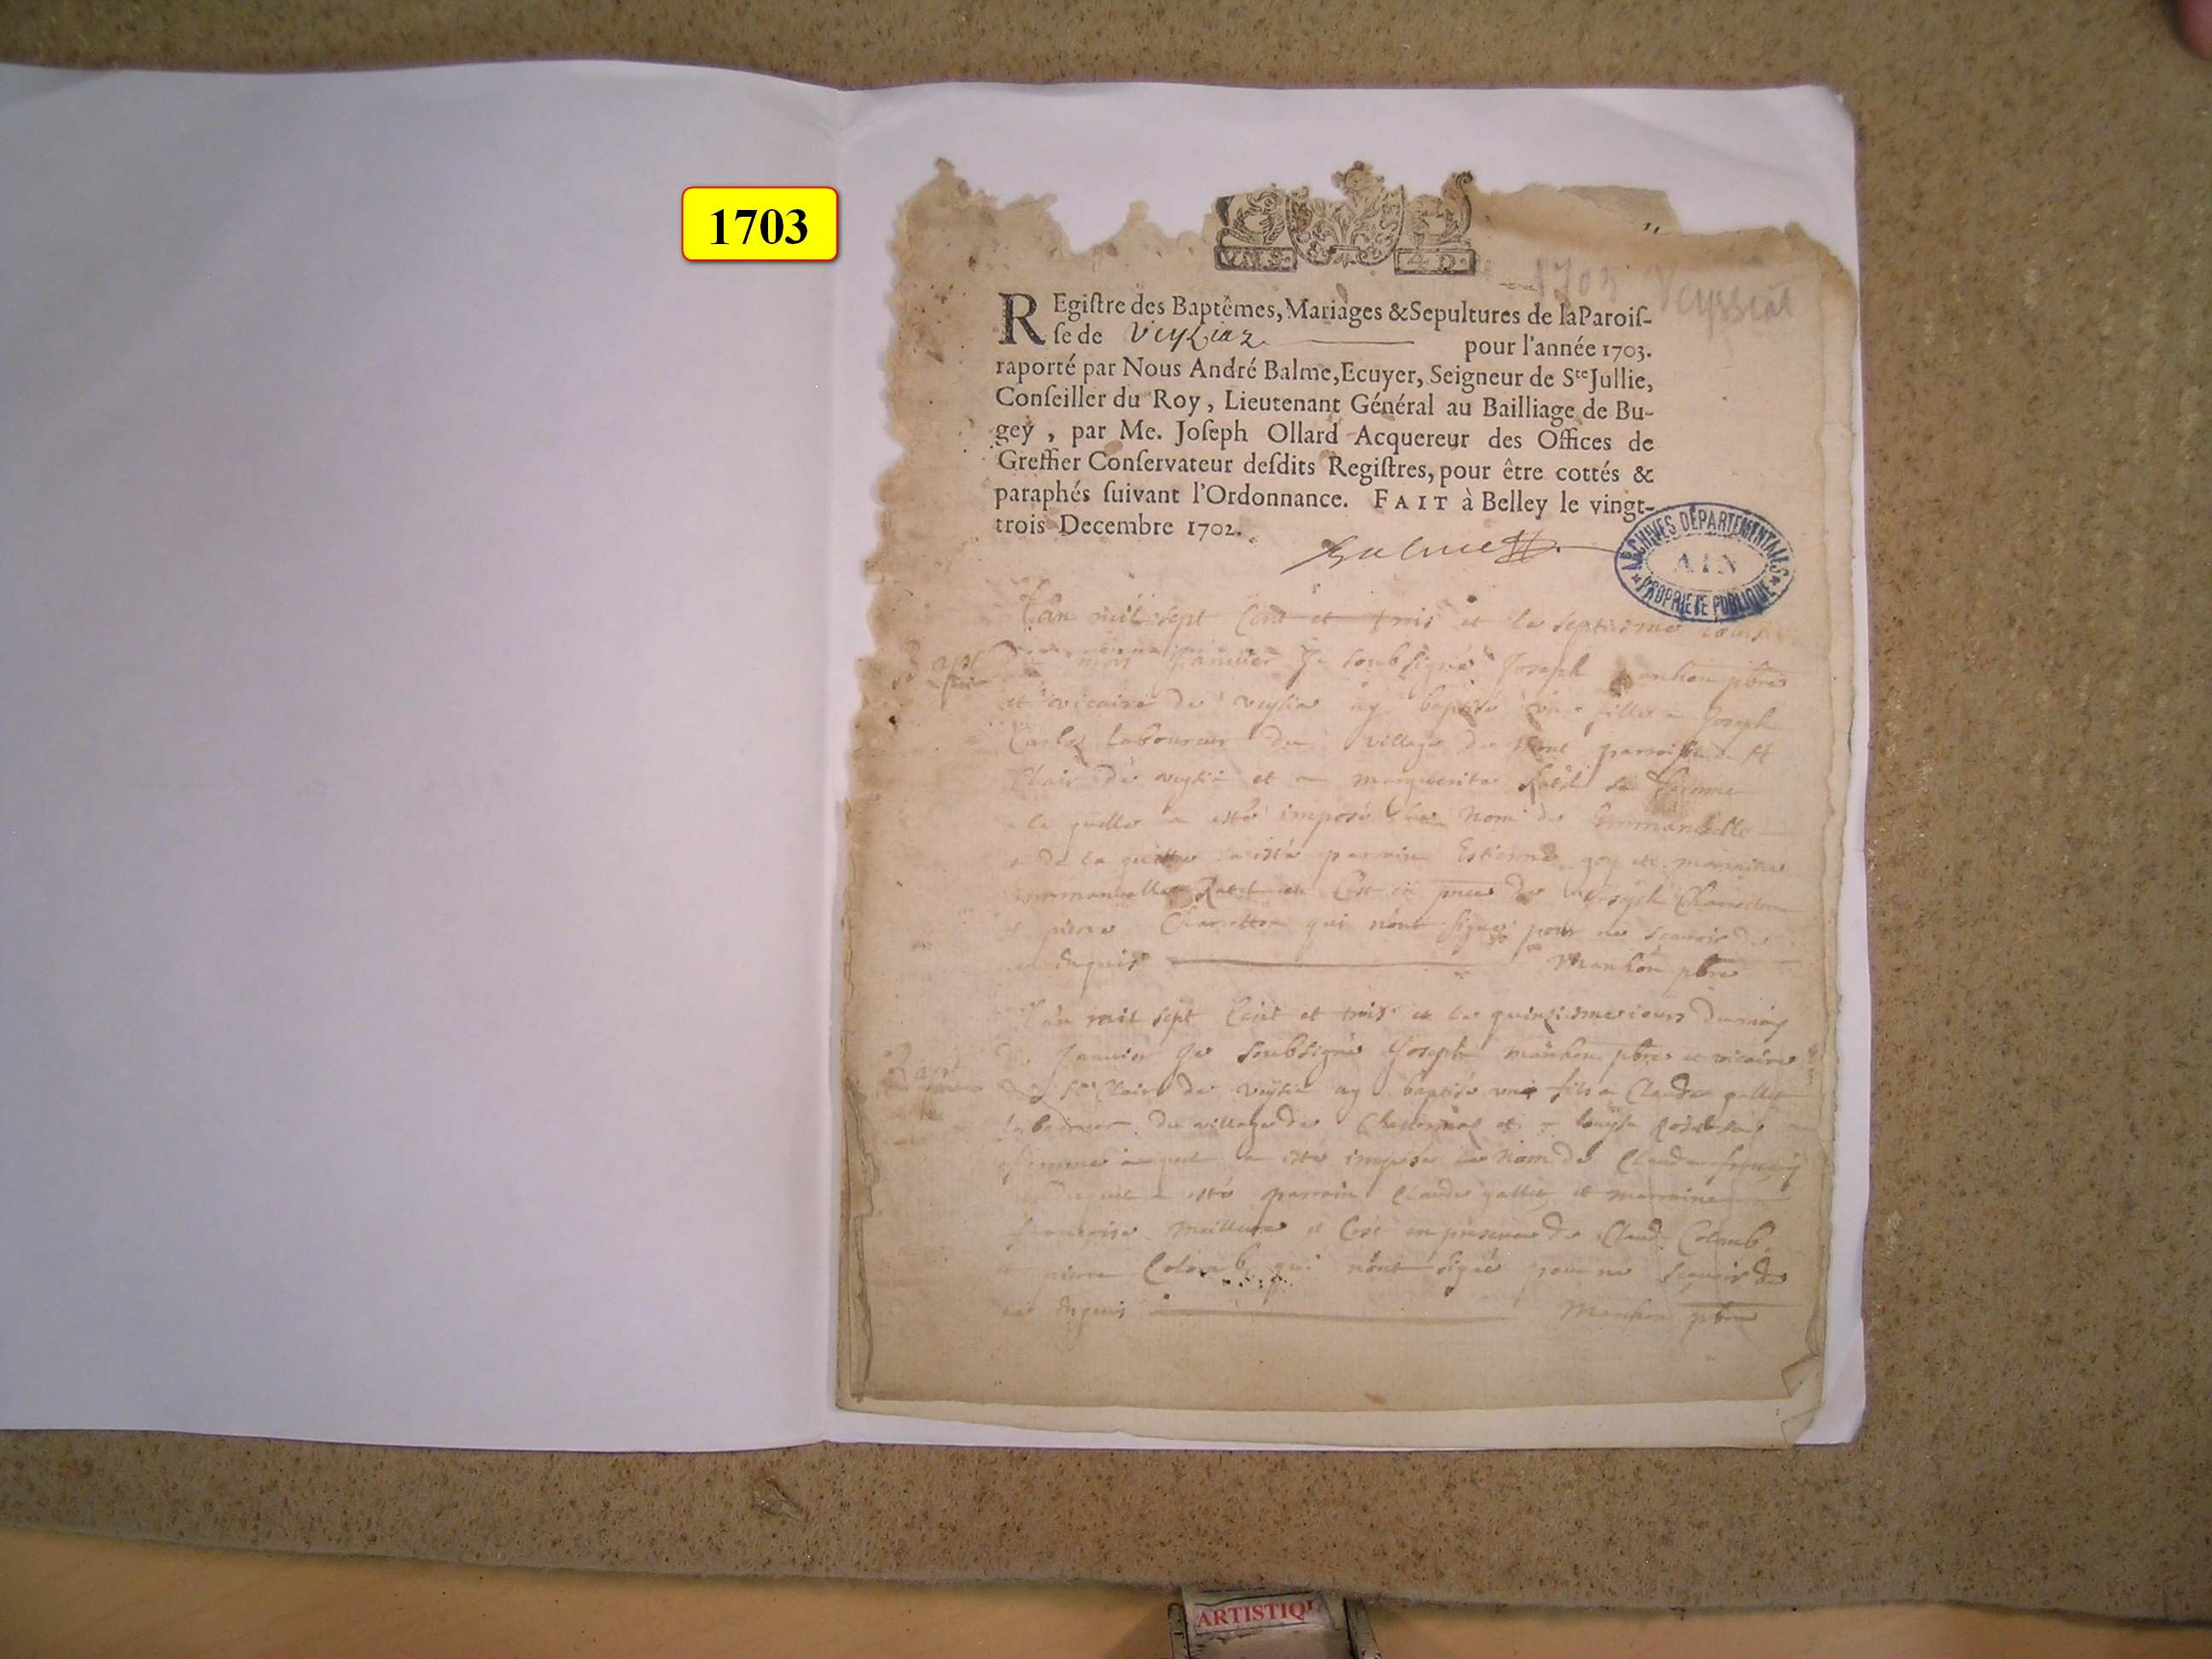 1703
VINS. 4. D.
1703 Veyziat
REgiſtre des Baptêmes, Mariages & Sepultures de la Paroiſ-
ſe de Veyziaz pour l'année 1703.
raporté par Nous André Balme, Ecuyer, Seigneur de Ste Jullie,
Conſeiller du Roy, Lieutenant Général au Bailliage de Bu-
gey, par Me. Joſeph Ollard Acquereur des Offices de
Greffier Conſervateur deſdits Regiſtres, pour être cottés &
paraphés ſuivant l'Ordonnance. FAIT à Belley le vingt-
trois Decembre 1702.
Balme
ARCHIVES DÉPARTEMENTALES
AIN
PROPRIETE PUBLIQUE
L'an mil sept Cent et trois et le septiesme iours
Bapt
du mois Janvier Je soubsigné Joseph pbre
et vicaire de veyzia ay baptisé une fille a Joseph
laboureur du village de Mont parroisse de St
Clair de veyzia et a marguerite sa femme
a la quelle a esté imposé le Nom de Emmanuelle
et de la quelle a esté parrain Estienne goy et marraine
emmanuelle et Cest en pnce de Joseph Charretton
et pierre Charretton qui n'ont signé pour ne scavoir de
ce enquis Manhon pbre
L'an mil sept Cent et trois et le quinziesme iours du moy
Bapt
de Janvier Je soubsigné Joseph manhon pbre et vicaire
de St Clair de Veyzia ay baptisé un fils a Claude gallet
laboureur du village de et a louyse sa
femme auquel a esté imposé le Nom de Claude françoy
duquel a esté parrain Claude gallet et marraine
françoise et Cest en presence de Claude Colomb
et pierre Colomb qui n'ont signé pour ne scavoir de
ce enquis Manhon pbre
ARTISTIQU